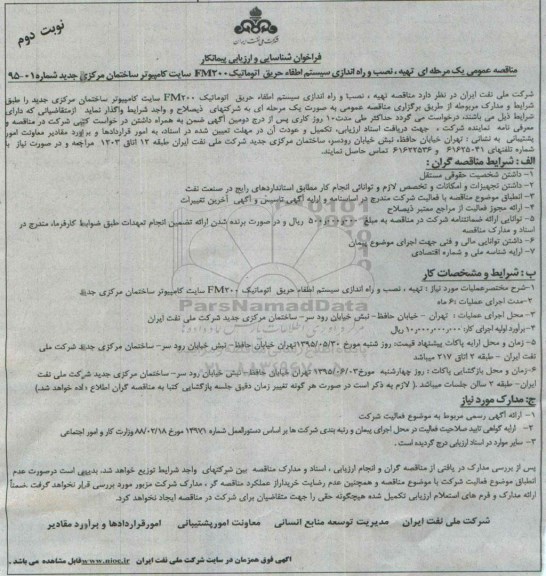 نوبت دوم
شرکت ملی نفت ایران
فراخوان شناسایی و ارزیابی پیمانکار
مناقصه عمومی یک مرحله ای تهیه ، نصب و راه اندازی سیستم اطفاء حریق اتوماتیک FM۲۰۰ سایت کامپیوتر ساختمان مرکزی جدید شماره ۰۱-۹۵
شرکت ملی نفت ایران در نظر دارد مناقصه تهیه ، نصب و راه اندازی سیستم اطفاء حریق اتوماتیک FM۲۰۰ سایت کامپیوتر ساختمان مرکزی جدید را طبق
شرایط و مدارک مربوطه از طریق برگزاری مناقصه عمومی به صورت یک مرحله ای به شرکتهای ذیصلاح و واجد شرایط واگذار نماید . ازمتقاضیانی که دارای
شرایط ذیل می باشند، درخواست می گردد حداکثر طی مدت ۱۰ روز کاری پس از درج دومین آگهی ضمن به همراه داشتن در خواست کتبی شرکت در مناقصه و
معرفی نامه نماینده شرکت ، جهت دریافت اسناد ارزیابی، تکمیل و عودت آن در مهلت تعیین شده در اسناد، به امور قراردادها و برآورد مقادیر معاونت امور
پشتیبانی به نشانی : تهران خیابان حافظ، نبش خیابان رودسر، ساختمان مرکزی جدید شرکت ملی نفت ایران طبقه ۱۲ اتاق ۱۲۰۳ مراجعه و در صورت نیاز با
شماره تلفنهای ۶۱۶۲۵۰۴۱ و ۶۱۶۲۲۵۳۶ تماس حاصل نمایند.
الف : شرایط مناقصه گران :
۱- داشتن شخصیت حقوقی مستقل
۲- داشتن تجهیزات و امکانات و تخصص لازم و توانائی انجام کار مطابق استانداردهای رایج در صنعت نفت
۳- انطباق موضوع مناقصه با فعالیت شرکت مندرج در اساسنامه و ارایه آگهی تاسیس و آگهی آخرین تغییرات
۴- ارائه مجوز فعالیت از مراجع معتبر ذیصلاح
۵- توانایی ارائه ضمانتنامه شرکت در مناقصه به مبلغ ۵۰۰,۰۰۰,۰۰۰ ریال و در صورت برنده شدن ارائه تضمین انجام تعهدات طبق ضوابط کارفرما، مندرج در
اسناد و مدارک مناقصه
۶- داشتن توانایی مالی و فنی جهت اجرای موضوع پیمان
۷- ارایه شناسه ملی و شماره اقتصادی
ب : شرایط و مشخصات کار
۱-شرح مختصرعملیات مورد نیاز : تهیه ، نصب و راه اندازی سیستم اطفاء حریق اتوماتیک FM۲۰۰ سایت کامپیوتر ساختمان مرکزی جدید
۲-مدت اجرای عملیات : ۶ ماه
۳- محل اجرای عملیات : تهران - خیابان حافظ- نبش خیابان رود سر- ساختمان مرکزی جدید شرکت ملی نفت ایران
۴-برآورد اولیه اجرای کار: ۱۰,۰۰۰,۰۰۰,۰۰۰ ریال
۵- زمان و محل ارایه پاکات پیشنهاد قیمت: روز شنبه مورخ ۱۳۹۵/۰۵/۳۰ تهران خیابان حافظ- نبش خیابان رود سر- ساختمان مرکزی جدید شرکت ملی نفت
نفت ایران - طبقه ۲ اتاق ۲۱۷ میباشد
۶-زمان و محل بازگشایی پاکات : روز چهارشنبه مورخ ۱۳۹۵/۰۶/۰۳ تهران خیابان حافظ- نبش خیابان رود سر- ساختمان مرکزی جدید شرکت ملی نفت
ایران- طبقه ۲ سالن جلسات میباشد . ( لازم به ذکر است در صورت هر گونه تغییر زمان دقیق جلسه بازگشایی کتبا به مناقصه گران اطلاع داده خواهد شد.)
ج: مدارک مورد نیاز
۱- ارائه آگهی رسمی مربوط به موضوع فعالیت شرکت
۲- ارایه گواهی تایید صلاحیت فعالیت در محل اجرای پیمان و رتبه بندی شرکت ها بر اساس دستورالعمل شماره ۱۳۹۷۱ مورخ ۸۸/۰۲/۱۸ وزارت کار و امور اجتماعی
۳- سایر موارد در اسناد ارزیابی درج گردیده است .
پس از بررسی مدارک در یافتی از مناقصه گران و انجام ارزیابی ، اسناد و مدارک مناقصه بین شرکتهای واجد شرایط توزیع خواهد شد. بدیهی است درصورت عدم
انطباق موضوع فعالیت شرکت با موضوع مناقصه و همچنین عدم رضایت خریداراز عملکرد مناقصه گر ، مدارک شرکت مزبور مورد بررسی قرار نخواهد گرفت .ضمناً
ارائه مدارک و فرم های استعلام ارزیابی تکمیل شده هیچگونه حقی را جهت متقاضیان برای شرکت در مناقصه ایجاد نخواهد کرد.
شرکت ملی نفت ایران مدیریت توسعه منابع انسانی معاونت امورپشتیبانی امورقراردادها و برآورد مقادیر
آگهی فوق همزمان در سایت شرکت ملی نفت ایران www.nioc.ir قابل مشاهده می باشد .
ParsNamadData